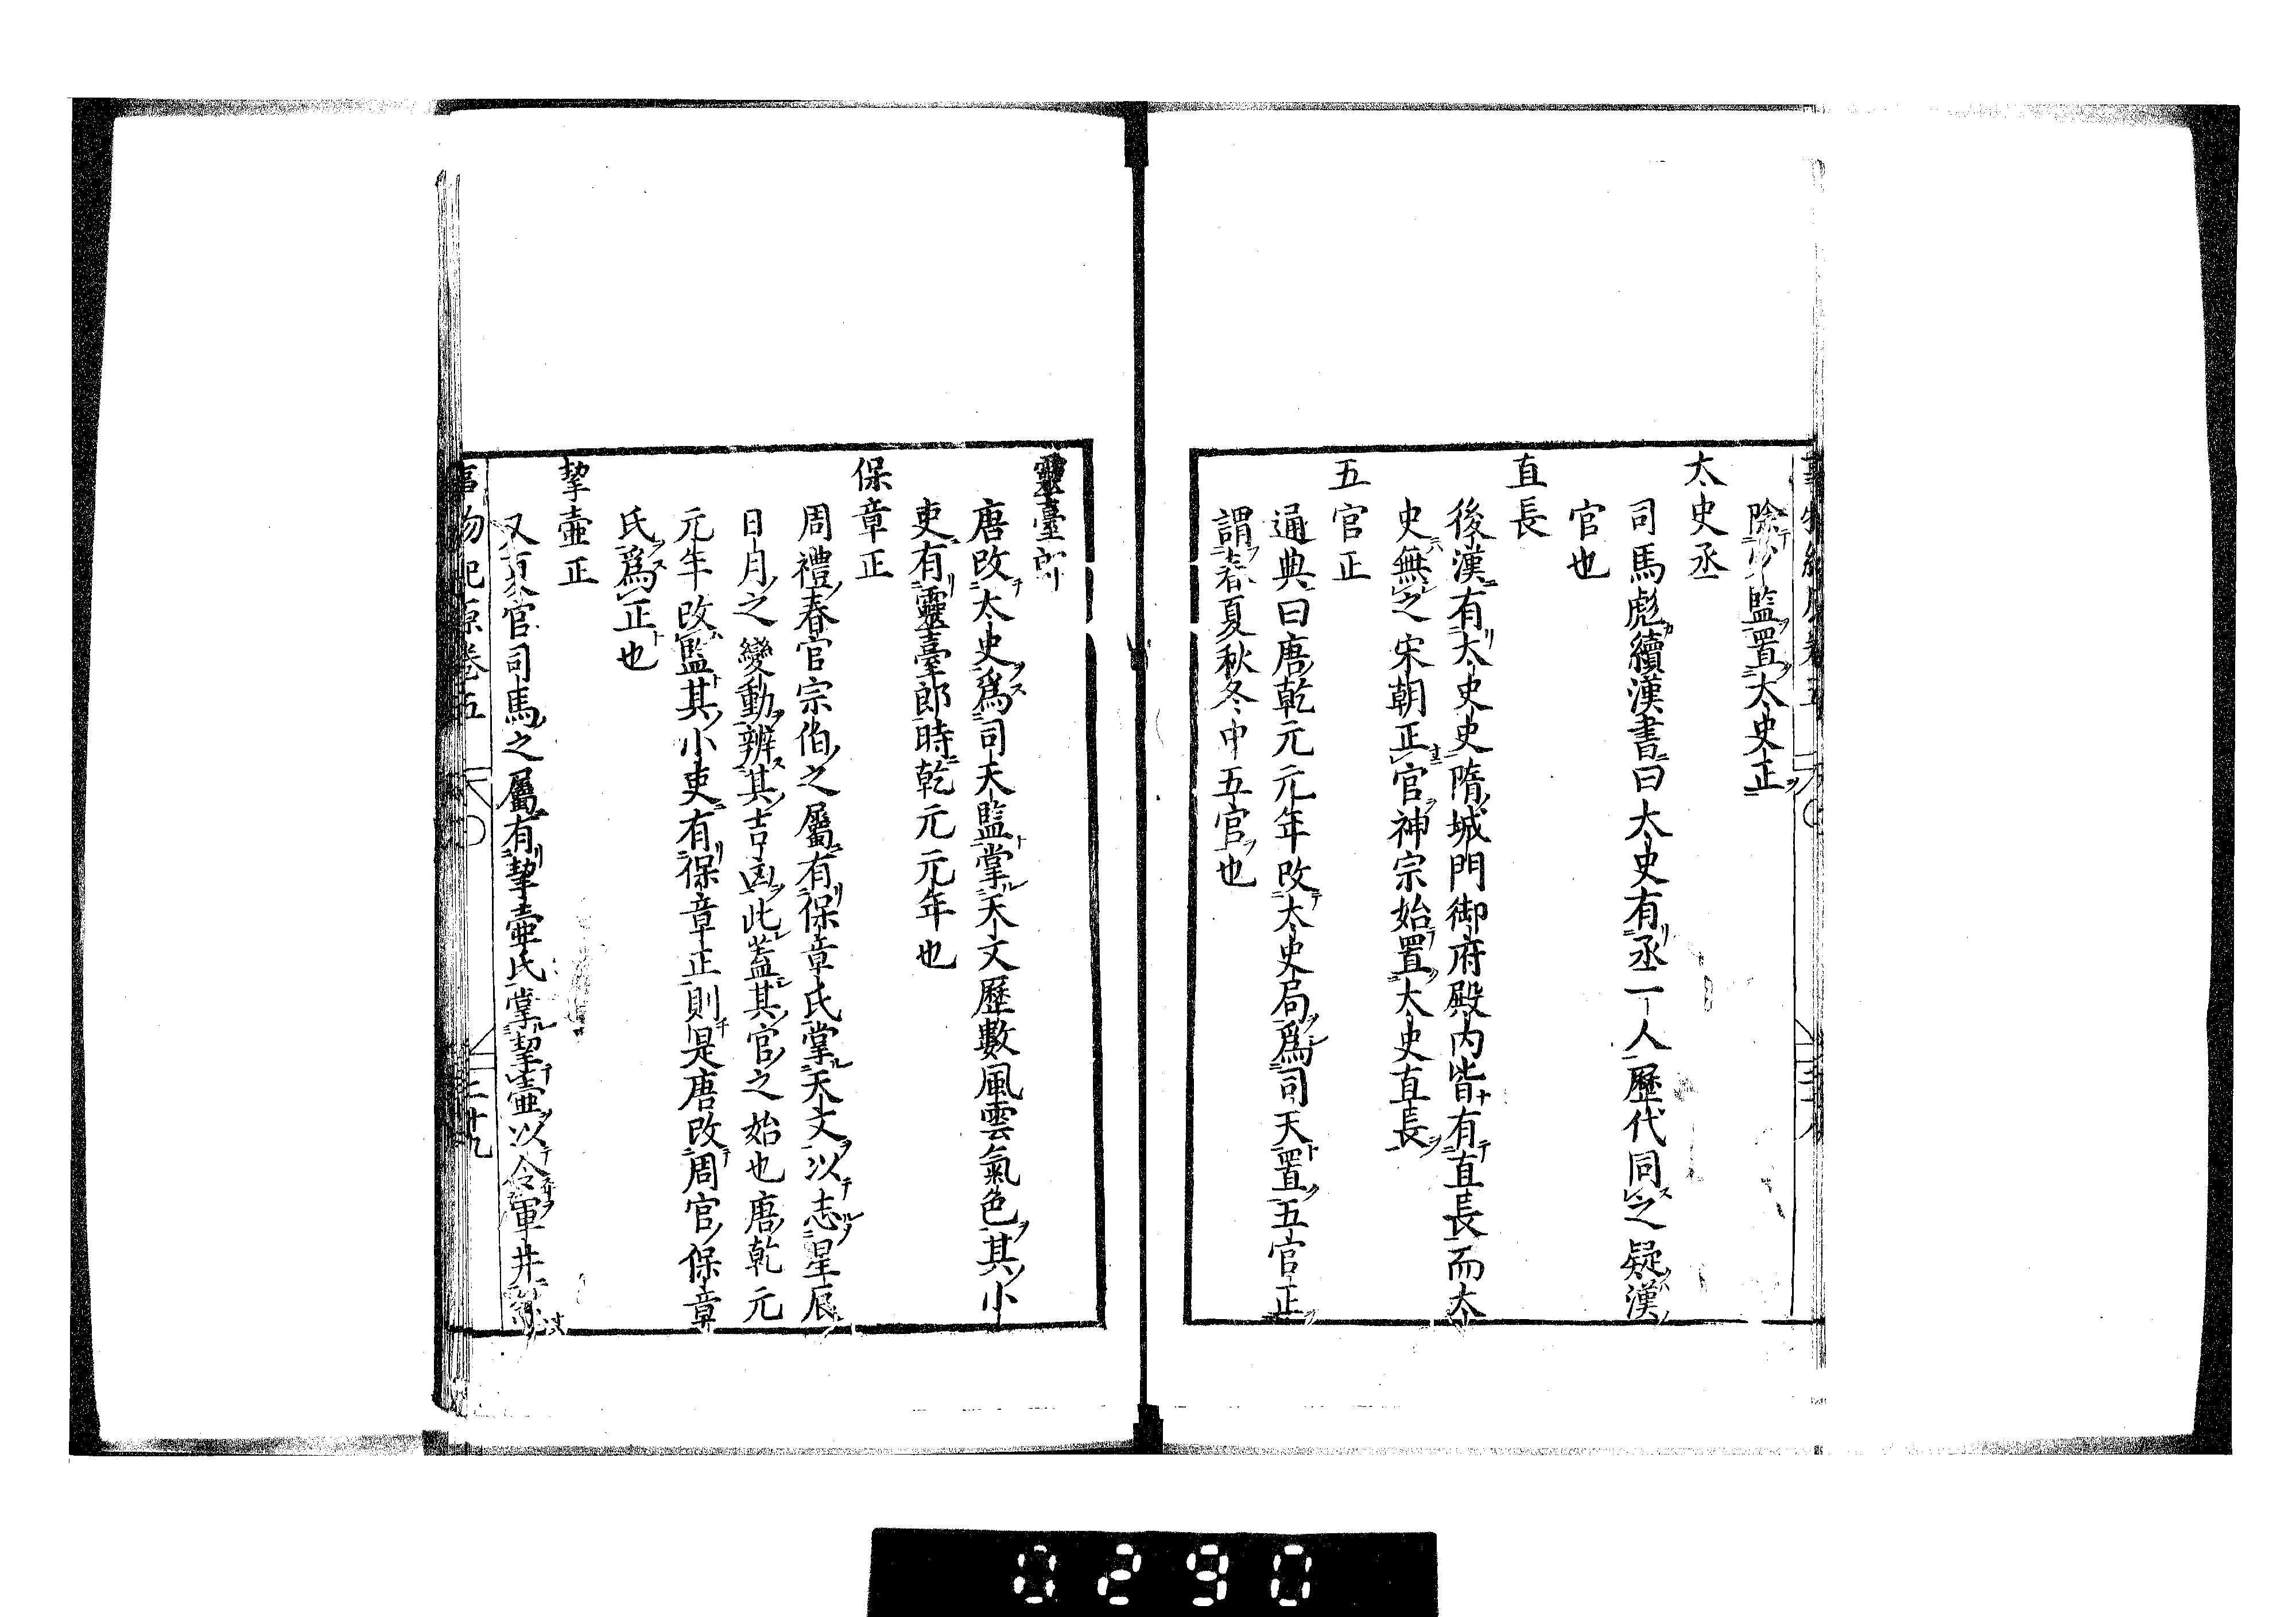 除少監置太史正
太史丞
司馬彪續漢書曰太史有丞一人歷代同之疑漢
官也
直長
後漢有太史史隋城門御府殿内皆有直長而太
史無之宋朝正官神宗始置太史直長
五官正
通典曰唐乾元元年改太史局爲司天置五官正
謂春夏秋冬中五官也
靈臺郎
唐改太史爲司天監掌天文歷數風雲氣色其小
吏有靈臺郎時乾元元年也
保章正
周禮春官宗伯之屬有保章氏掌天文以志星辰
日月之變動辨其吉凶此蓋其官之始也唐乾元
元年改監其小吏有保章正則是唐改周官保章
氏爲正也
挈壷正
又夏官司馬之屬有挈壷氏掌挈壷以令軍井
事物紀原卷五 二十九
0290